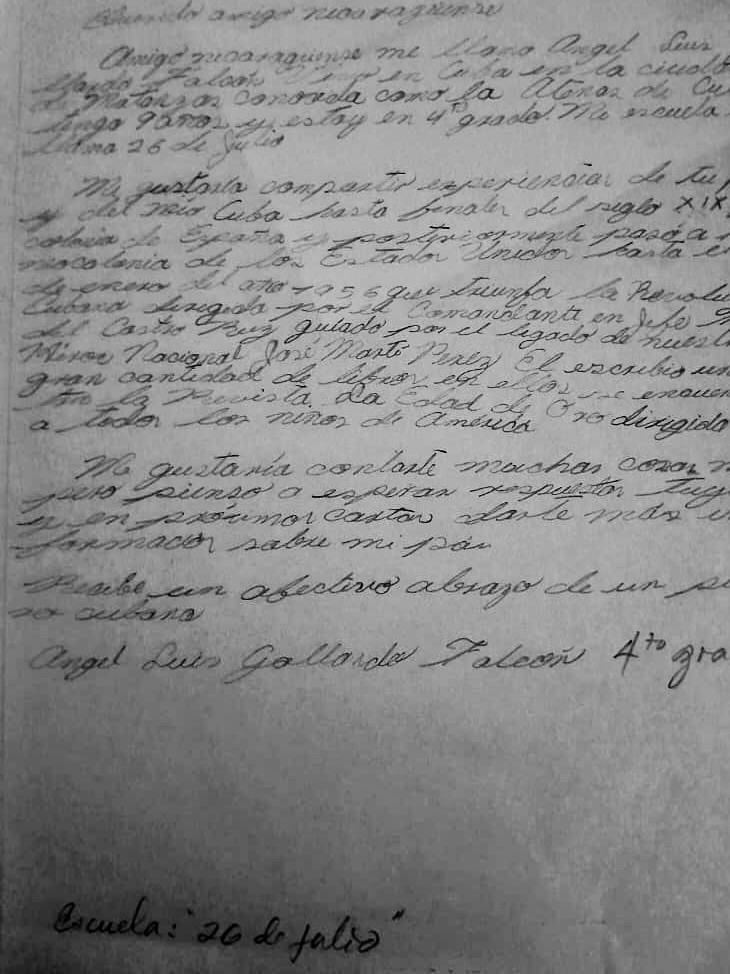 Querido amigo nicaragüense
Amigo nicaragüense me llamo Angel Luis
llardo Falcón en Cuba en la ciuda
de Matanzas conocida como la Atenas de Cu
tengo 9 años y estoy en 4to grado. Mi escuela
llama 26 de Julio
Me gustaría compartir experiencias de tu p
y del mío Cuba hasta finales del siglo XIX
colonia de España y posteriormente pasó a
neocolonia de los Estados Unidos hasta e
de enero del año que triunfa la Revolu
Cubana dirigida por el Comandante en Jefe
del Castro Ruz guiado por el legado de nuest
Héroe Nacional José Martí Perez El escribio un
gran cantidad de libros en ellos se encuen
tra la Revista La Edad de Oro dirigida
a todos los niños de América
Me gustaría contarte muchas cosas m
pero pienso a esperar respuestas tuy
y en próximas cartas darte más i
formación sobre mi país
Recibe un afectivo abrazo de un
ro cubano
Angel Luis Gallardo Falcón 4to gra
Escuela: "26 de julio"